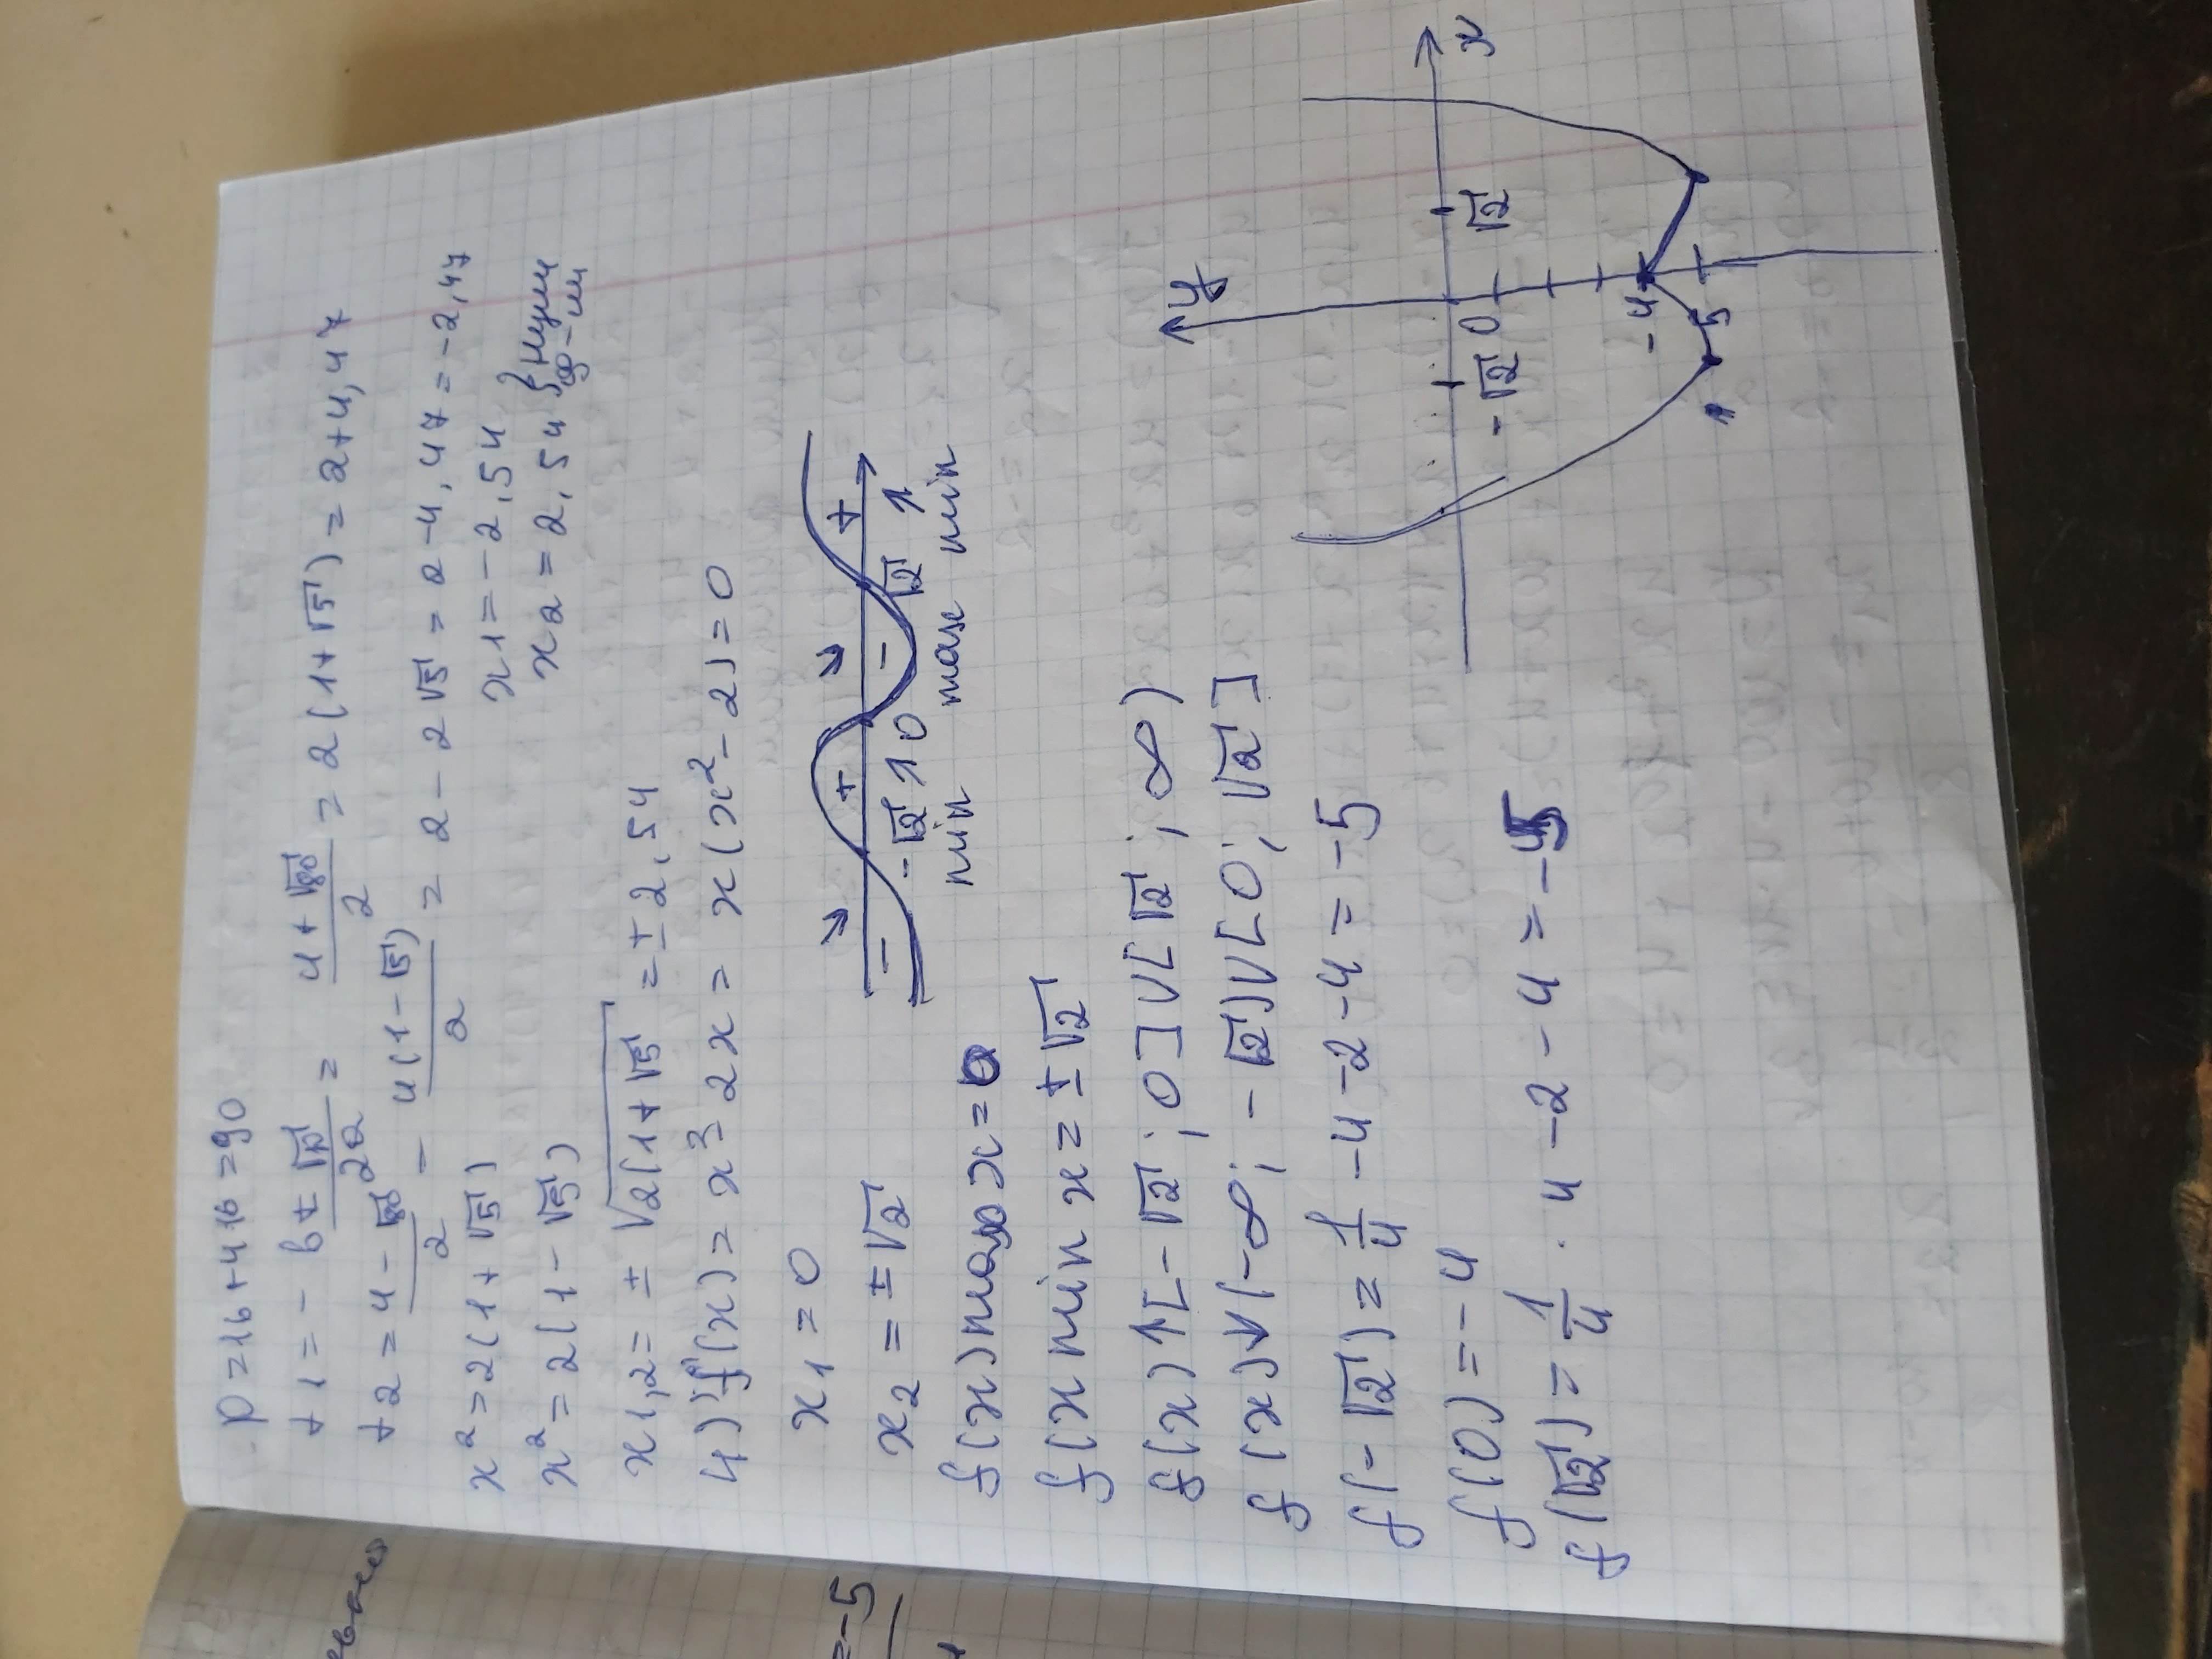 D=16+4·16=90
t1=-b±√D/2a = 4+√80/2 = 2(1+√5)=2+4,47
t2=4-√80/2 = 4(1-√5)/2 = 2-2√5=2-4,47=-2,47
x²=2(1+√5)
x1=-2,54
x²=2(1-√5)
x2=2,54 } нули ф-ии
x1,2=±√2(1+√5)=±2,54
4) f'(x)=x³ 2x=x(x²-2)=0
x1=0
x2=±√2
- + - +
-√2 0 √2
min max min
f(x)max x=0
f(x min x=±√2
f(x)↑[-√2;0]V[√2;∞)
f(x)↓(-∞;-√2)V[0;√2]
f(-√2)=1/4-4-2-4=-5
f(0)=-4
f(√2)=1/4·4-2-4=-5
y
x
-√2
0
√2
-4
5
=-5
4